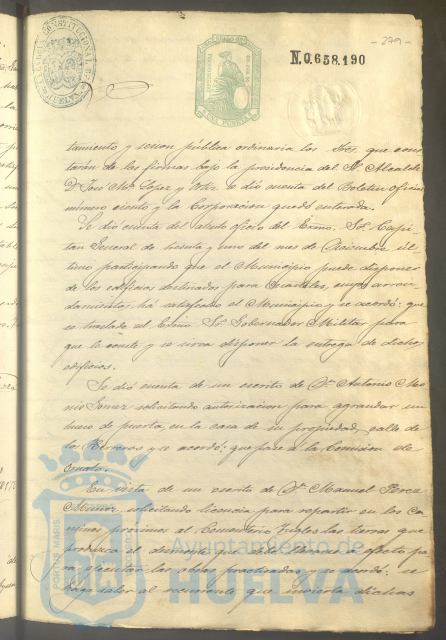 - 279 -
N.0.658.190
tamiento y sesion pública ordinaria los Sres. que cons
tarán de las firmas bajo la presidencia del Sr. Alcalde
D. José Mª Lopez y Ortiz se dió cuenta del Boletin oficial
número ciento y la Corporacion quedó enterada.
Se dió cuenta del atento oficio del Exmo. Sr. Capi
tan General de treinta y uno del mes de Diciembre úl
timo participando que el Municipio puede disponer
de los edificios destinados para Cuarteles, cuyos arren
damientos ha satisfecho el Municipio y se acordó: que
se traslade al Exmo. Sr. Gobernador Militar para
que le conste y se sirva disponer la entrega de dichos
edificios.
Se dió cuenta de un escrito de Dn. Antonio
Gomez solicitando autorizacion para agrandar un
hueco de puerta en la casa de su propiedad, calle de
y se acordó: que pase á la Comision de
Ornato.
En vista de un escrito de Dn. Manuel Perez
Muñoz solicitando licencia para repartir en los Ca
minos próximos al Cementerio Ingles las tierras que
produzca el desmonte que debe llevarse á efecto pa
ra ejecutar las obras practicadas y se acordó: se
haga saber al recurrente que invierta dichas
Ayuntamiento de
HUELVA